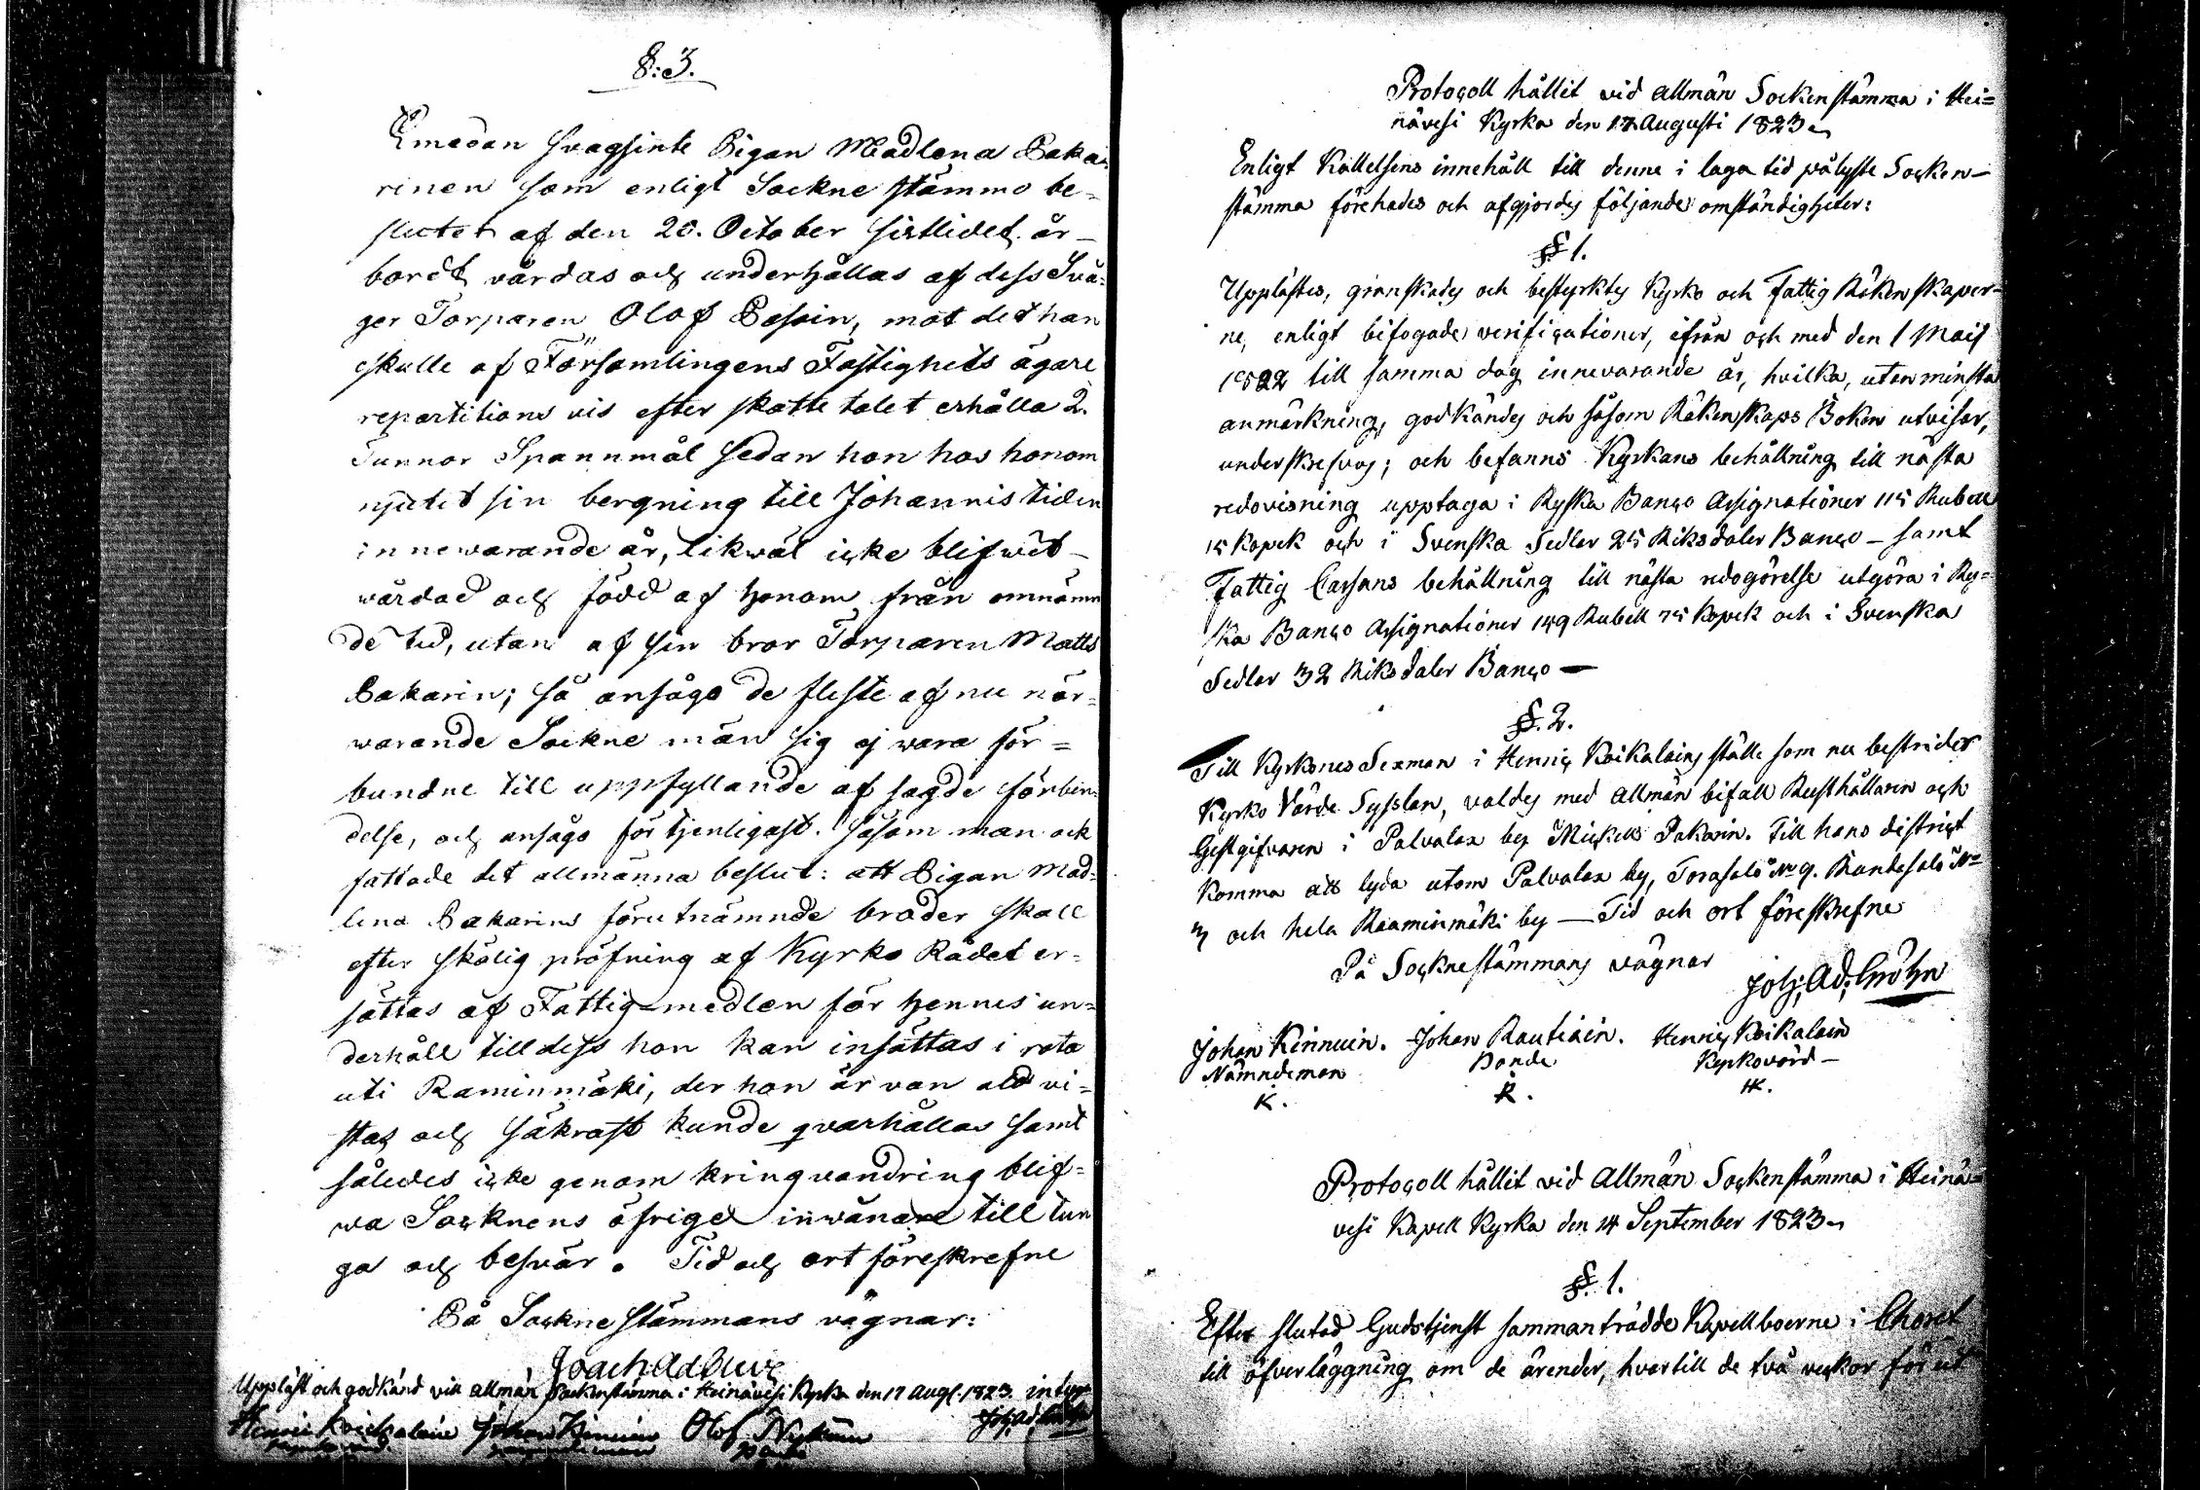 §:3.
Emedan svagsinte Pigan Madlena Paka-
rinen som enligt Sockne stämmo be-
slutet af den 20. October sistlidet år
bordt vårdas och underhållas af dess Svå-
ger Torparen Olof Pasain, mot det han
skulle af Församlingens Fastighets ägare
repartitions vis efter skatte talet erhålla 2.
Tunnor Spannmål sedan hon hos honom
njutet sin bergning till Johannis tiden
innewarande år, likwäl icke blifwit
wårdad och född af honom från omnämn
de tid, utan af sin bror Torparen Matts
Pakarin; så ansågo de fleste af nu när-
warande Sockne män sig ej wara för=
bundne till uppfyllande af sagde förbin-
delse, och ansågs för tjenligast. såsom man ock
fattade det allmänna beslut: att Pigan Mad-
lena Pakarins förutnämnde broder skall
efter skälig pröfning af Kyrko Rådet er-
sättas af Fattig-medlen för hennes un-
derhåll till dess hon kan insättas i rota
uti Raminmäki, der hon är van att vi-
stas och säkrast kunde qvarhållas samt
således icke genom kringvandring blif-
wa Socknens öfrige inwånare till tun
ga och besvär. Tid och ort föreskrefne
På Sockne stämmans vägnar:
Uppläst och godkänd vid allmän Sockenstämma i Heinävesi Kyrka den 17 Aug. 1823. intyga
Henric Koickalain Johan Kinnuin Olof
Protocoll hållit vid allmän Sockenstämma i Hei=
nävesi Kyrka den 17 Augusti 1823
Enligt Kallelsens innehåll till denne i laga tid pålyste Socken-
stämma förehades och afgjordes följande omständigheter:
§ 1.
Upplästes, granskades och bestyrktes Kyrko och Fattig Räkenskaper-
ne, enligt bifogade verificationer, ifrån och med den 1 Maij
1822 till samma dag innevarande år, hvilka, utan minsta
anmärkning, godkändes och såsom Räkenskaps Boken utvisar,
underskrefvos; och befanns Kyrkans behållning till nästa
redovisning upptaga i Ryska Banco Assignationer 115 Rubell
15 Kopek och i Svenska Sedlar 25 Riksdaler Banco – samt
Fattig Cassans behållning till nästa redogörelse utgöra i Rys-
ka Banco Assignationer 149 Rubell 75 Kopek och i Svenska
Sedlar 32 Riksdaler Banco —
§. 2.
Till Kyrkones Sexman i Henric Koikalains ställe som nu bestrider
Kyrko Värde Sysslan, valdes med allmän bifall Rusthållaren och
Gestgifvaren i Palvalax by Mickels Pakarin. Till hans district
Komma att lyda utom Palvalax by, Torasalo No 9. Randesalo N=
3 och hela Raaminmäki by — Tid och ort föreskrefne
På Socknestämmans vägnar
Joh; Ad; Cröhn
Johan Kinnuin. Johan Rautiain. Henric Koikalain
Nämndeman Bonde Kyrkovärd –
K. R. HK.
Protocoll hållit vid Allmän Sockenstämma i Heinä-
vesi Kapell Kyrka den 14 September 1823
§. 1.
Efter slutad Gudstjenst sammanträdde Kapellboerne i Choret
till öfverläggning om de ärender, hvartill de två veckor förut